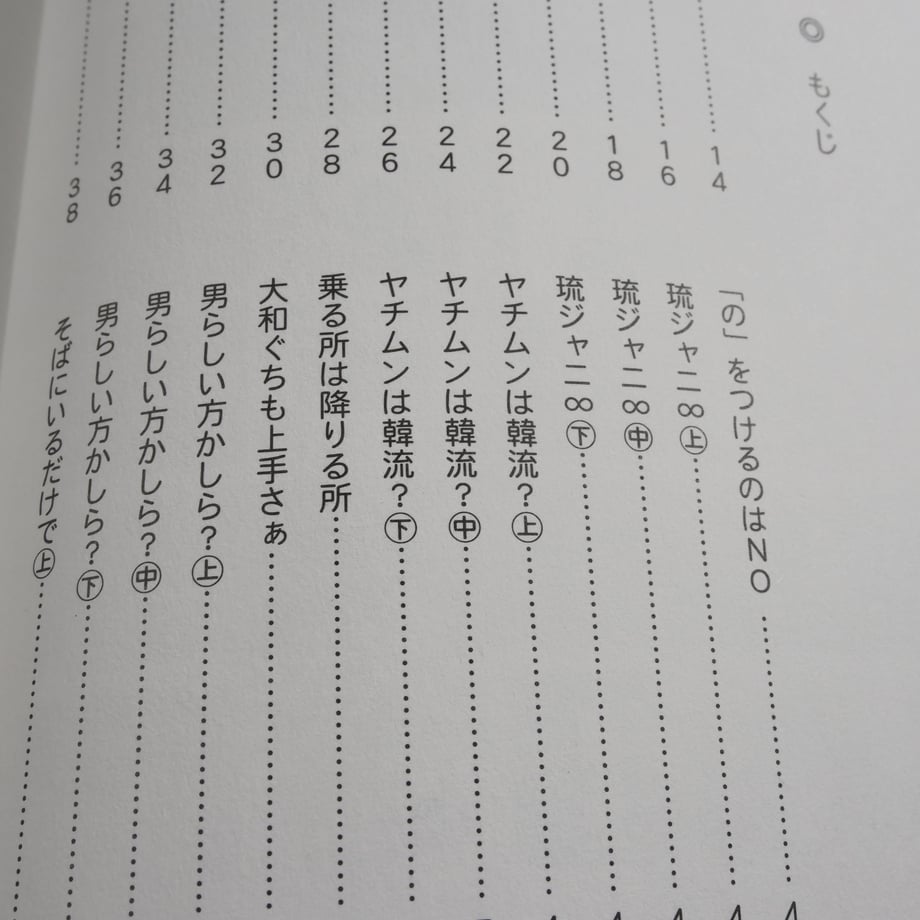 ◎ もくじ
14
16
18
20
22
24
26
28
30
32
34
36
38
「の」をつけるのはNO
琉ジャニ∞㊤
琉ジャニ∞㊥
琉ジャニ∞㊦
ヤチムンは韓流?㊤
ヤチムンは韓流?㊥
ヤチムンは韓流?㊦
乗る所は降りる所
大和ぐちも上手さぁ
男らしい方かしら?㊤
男らしい方かしら?㊥
男らしい方かしら?㊦
そばにいるだけで㊤